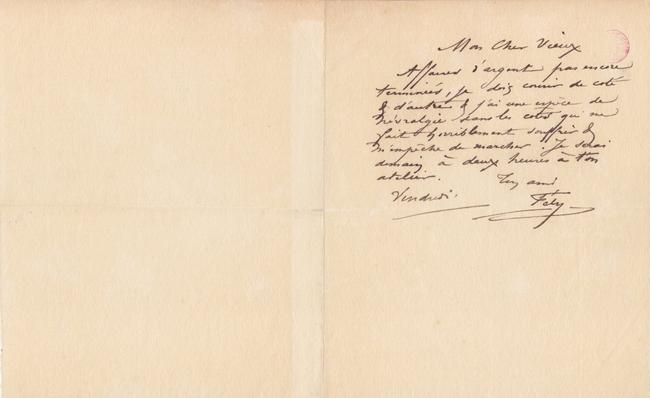 Mon Cher Vieux
Affaires d'argent pas encore
terminiés, je dois courir de coté
& d'autre & j'ai une espèce de
névralgie dans les cotes qui me
fait horriblement souffrir &
m'impêche de marcher. Je serai
demain à deux heures à ton
atelier.
Ton ami
Vendredi.
Fély